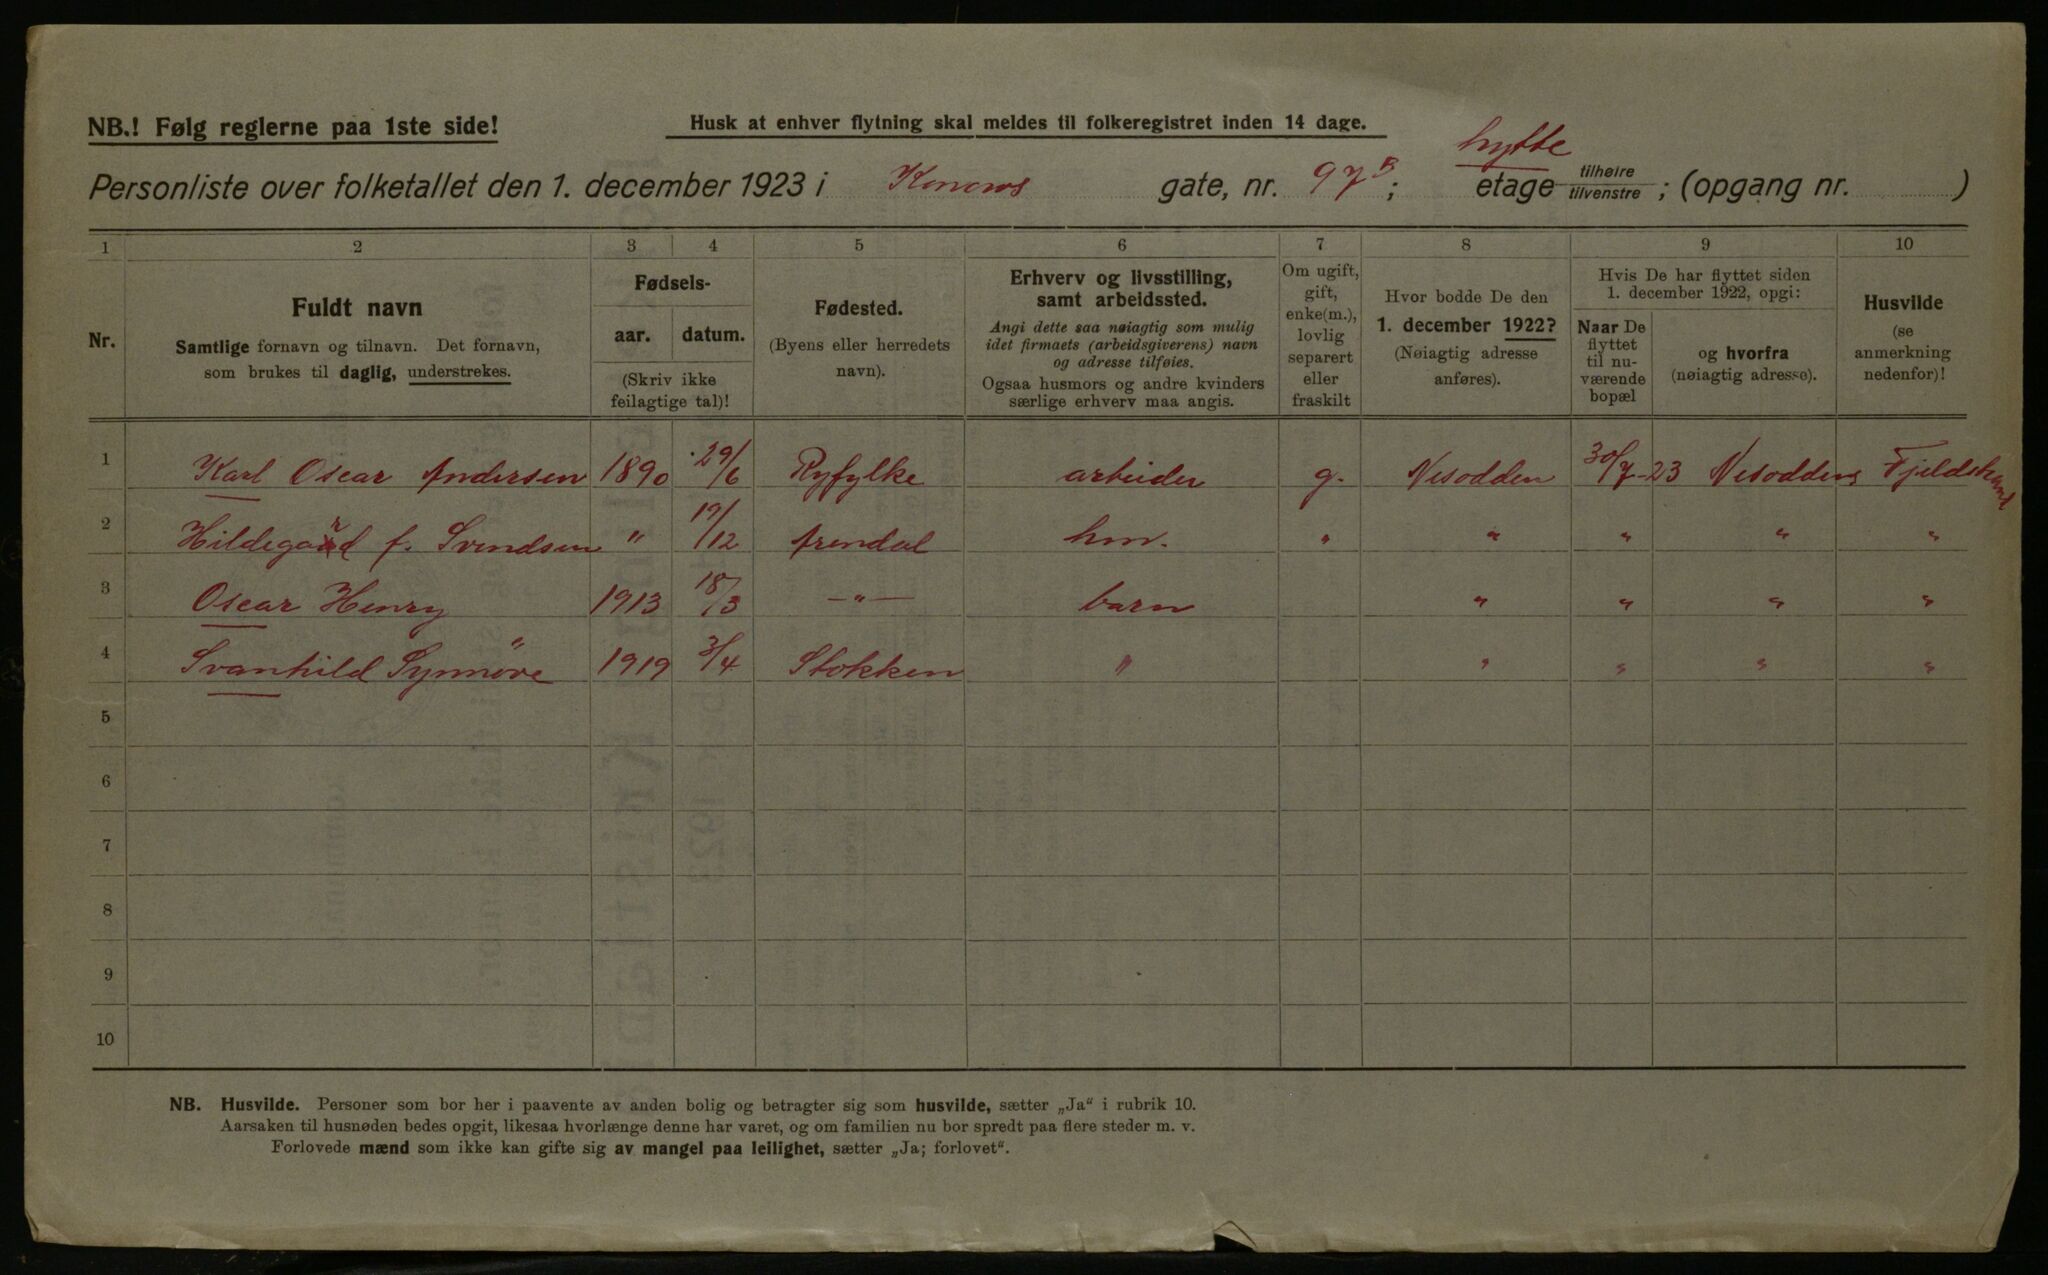 NB.! Følg reglerne paa 1ste side!
Husk at enhver flytning skal meldes til folkeregistret inden 14 dage.
Personliste over folketallet den 1. december 1923 i Konows gate, nr. 97B; hytte etage tilhøire tilvenstre; (opgang nr. )
1 2 3 4 5 6 7 8 9 10
Nr.
Fuldt navn
Samtlige fornavn og tilnavn. Det fornavn,
som brukes til daglig, understrekes.
Fødsels-
aar. datum.
(Skriv ikke
feilagtige tal)!
Fødested.
(Byens eller herredets
navn).
Erhverv og livsstilling,
samt arbeidssted.
Angi dette saa nøiagtig som mulig
idet firmaets (arbeidsgiverens) navn
og adresse tilføies.
Ogsaa husmors og andre kvinders
særlige erhverv maa angis.
Om ugift,
gift,
enke(m.),
lovlig
separert
eller
fraskilt
Hvor bodde De den
1. december 1922?
(Nøiagtig adresse
anføres).
Hvis De har flyttet siden
1. december 1922, opgi:
Naar De
flyttet
til nu-
værende
bopæl
og hvorfra
(nøiagtig adresse).
Husvilde
(se
anmerkning
nedenfor)!
1 Karl Oscar Andersen 1890 29/6 Ryfylke arbeider g. Nesodden 30/7-23 Nesodden, Fjeldstrand
2 Hildegard f. Svendsen " 19/12 Arendal hm. " " " " "
3 Oscar Henry 1913 18/3 —"— barn " " " "
4 Svanhild Synnøve 1919 3/4 Stokken " " " " "
5
6
7
8
9
10
NB. Husvilde. Personer som bor her i paavente av anden bolig og betragter sig som husvilde, sætter „Ja“ i rubrik 10.
Aarsaken til husnøden bedes opgit, likesaa hvorlænge denne har varet, og om familien nu bor spredt paa flere steder m. v.
Forlovede mænd som ikke kan gifte sig av mangel paa leilighet, sætter „Ja; forlovet“.